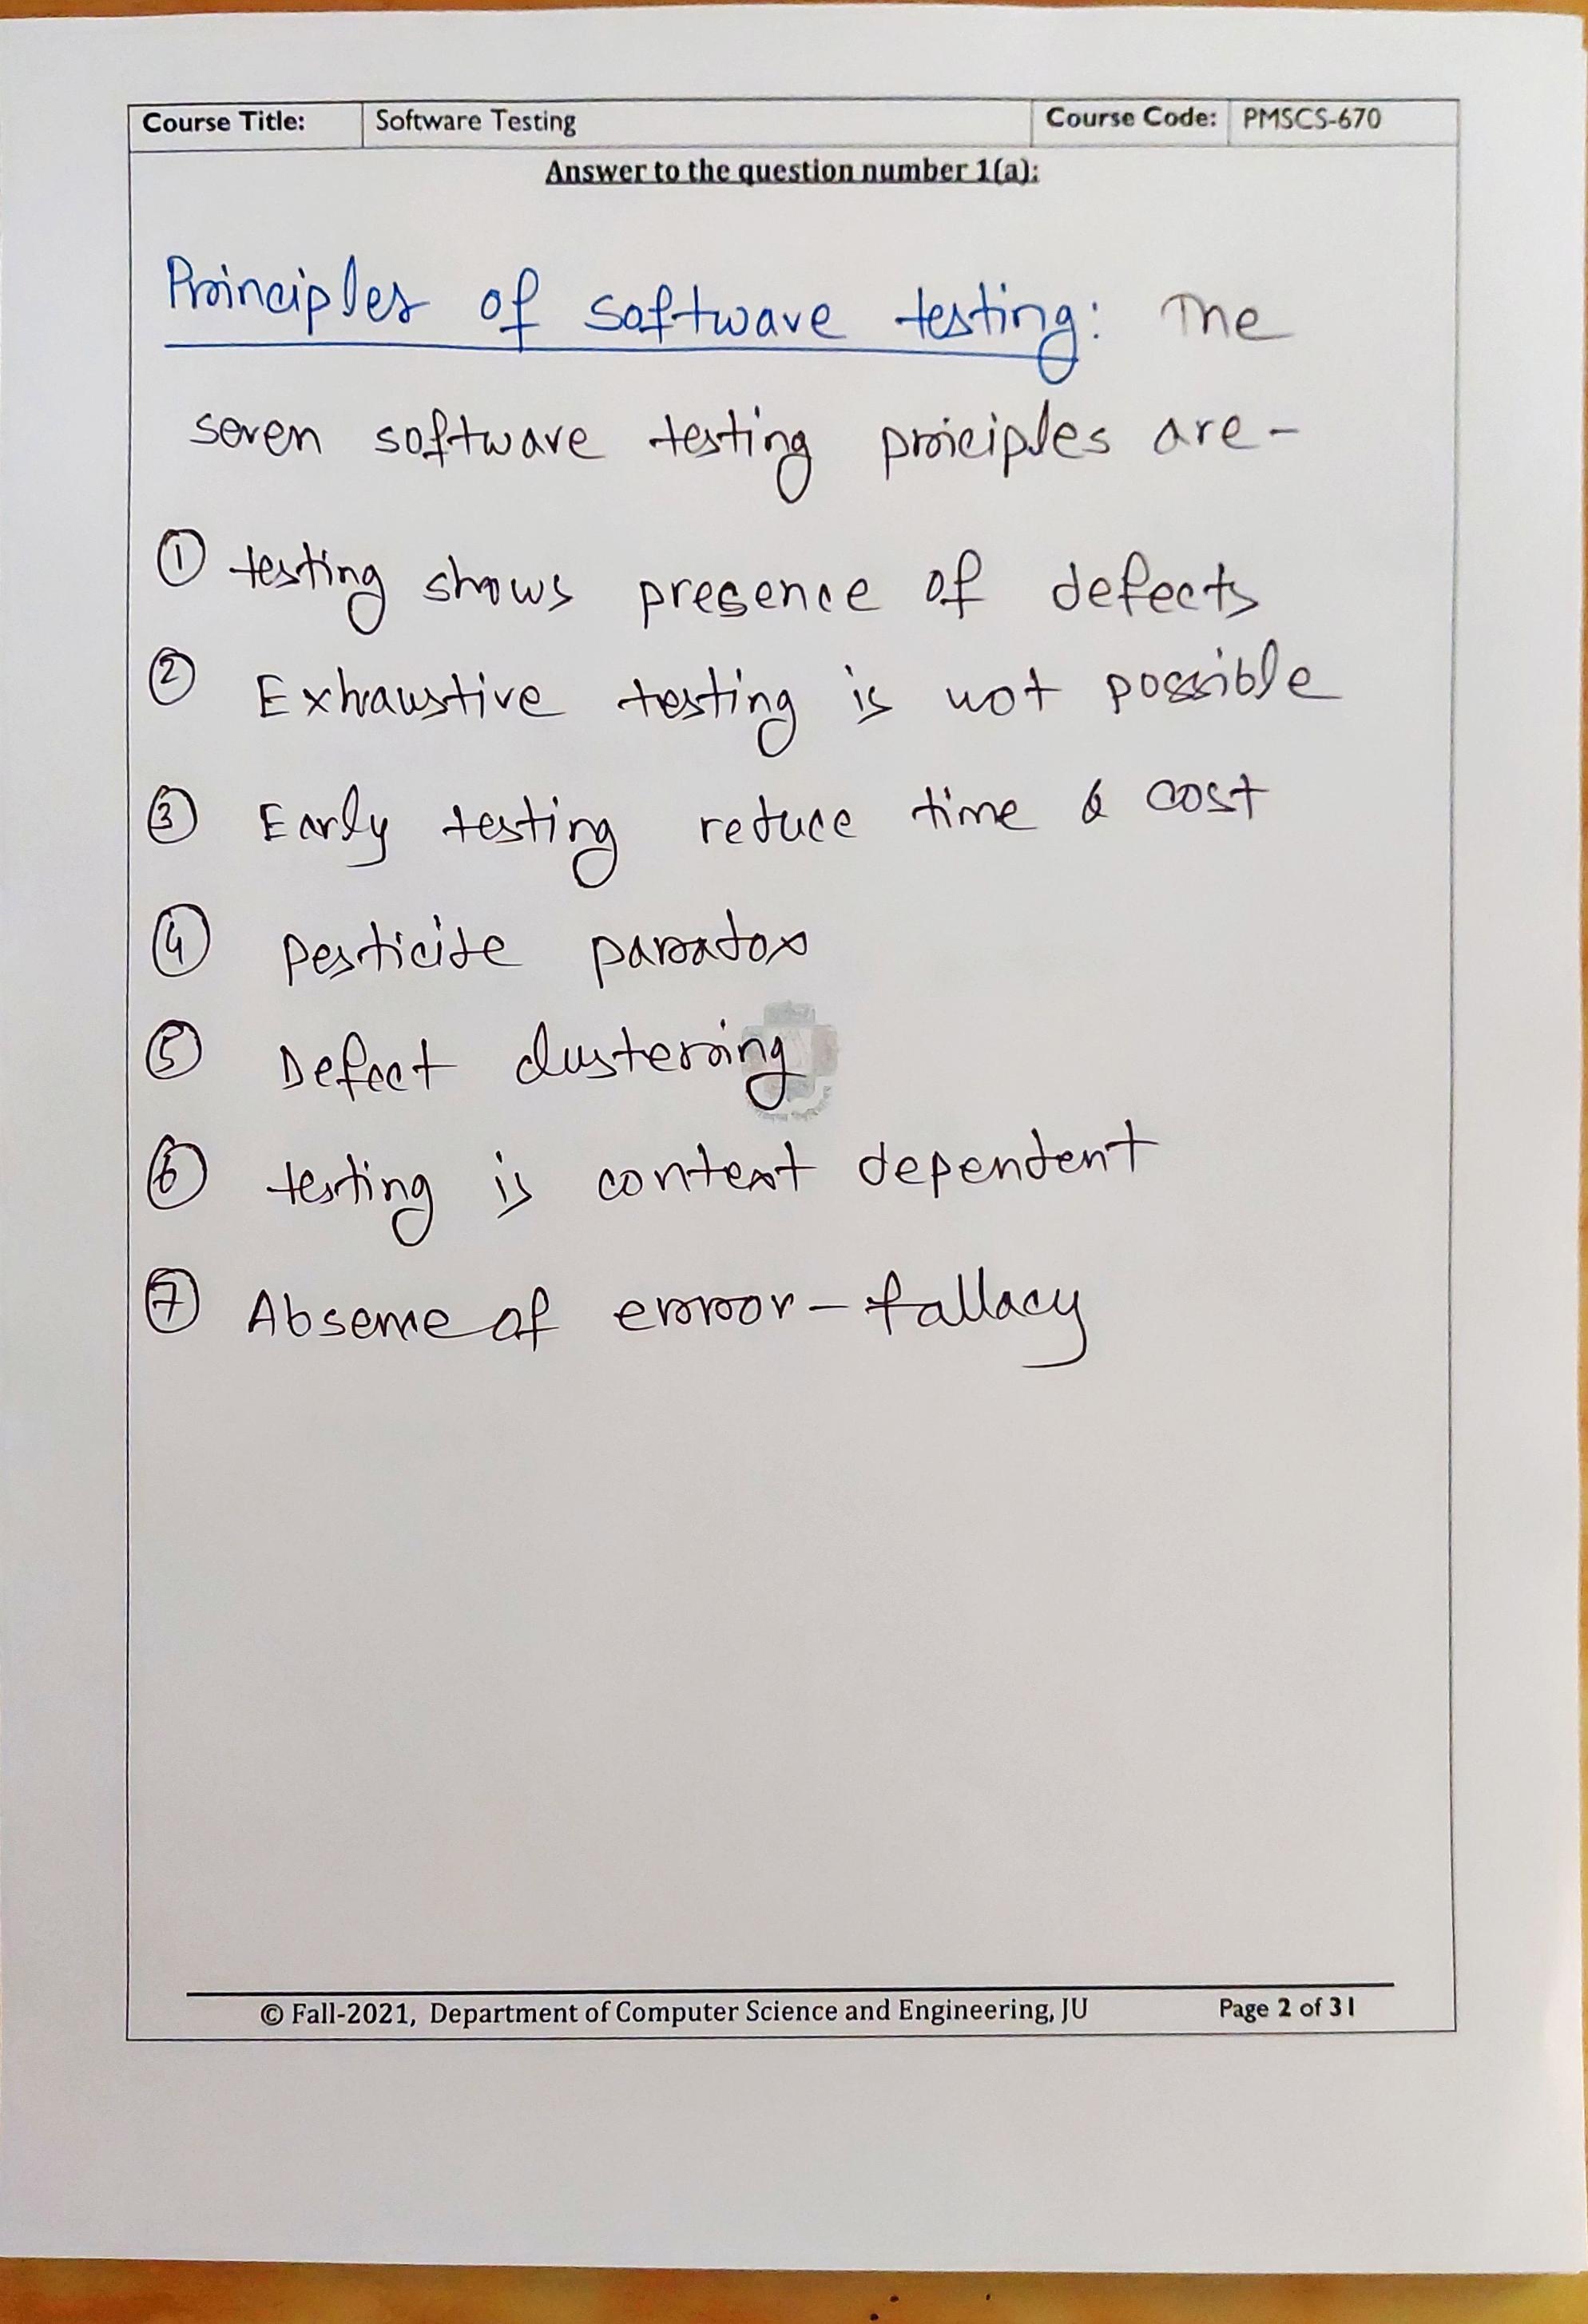 Course Title: Software Testing Course Code: PMSCS-670
Answer to the question number 1(a):
Principles of software testing: The
seven software testing priciples are-
① testing shows presence of defects
② Exhaustive testing is not possible
③ Early testing reduce time & cost
④ Pesticide paradox
⑤ Defect clustering
⑥ testing is context dependent
⑦ Absence of error-fallacy
© Fall-2021, Department of Computer Science and Engineering, JU Page 2 of 31